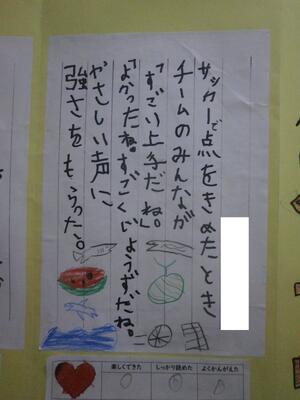 サッカーで点をきめたとき
チームのみんなが
「すごい上手だね。」
「よかったね。すごくじょうずだね。」
やさしい声に
強さをもらった。
楽しくできた
しっかり読めた
よくかんがえた